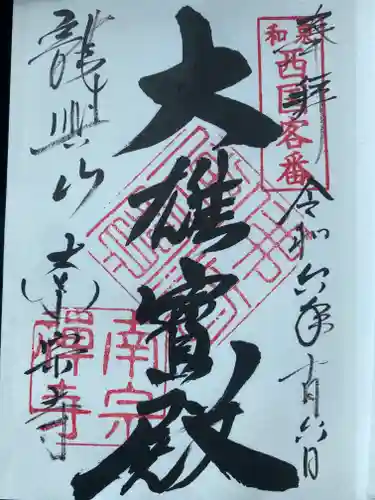 奉拝
和泉
西国客番
令和六年十月六日
大雄寶殿
龍興山
南宗寺
南宗
禅寺